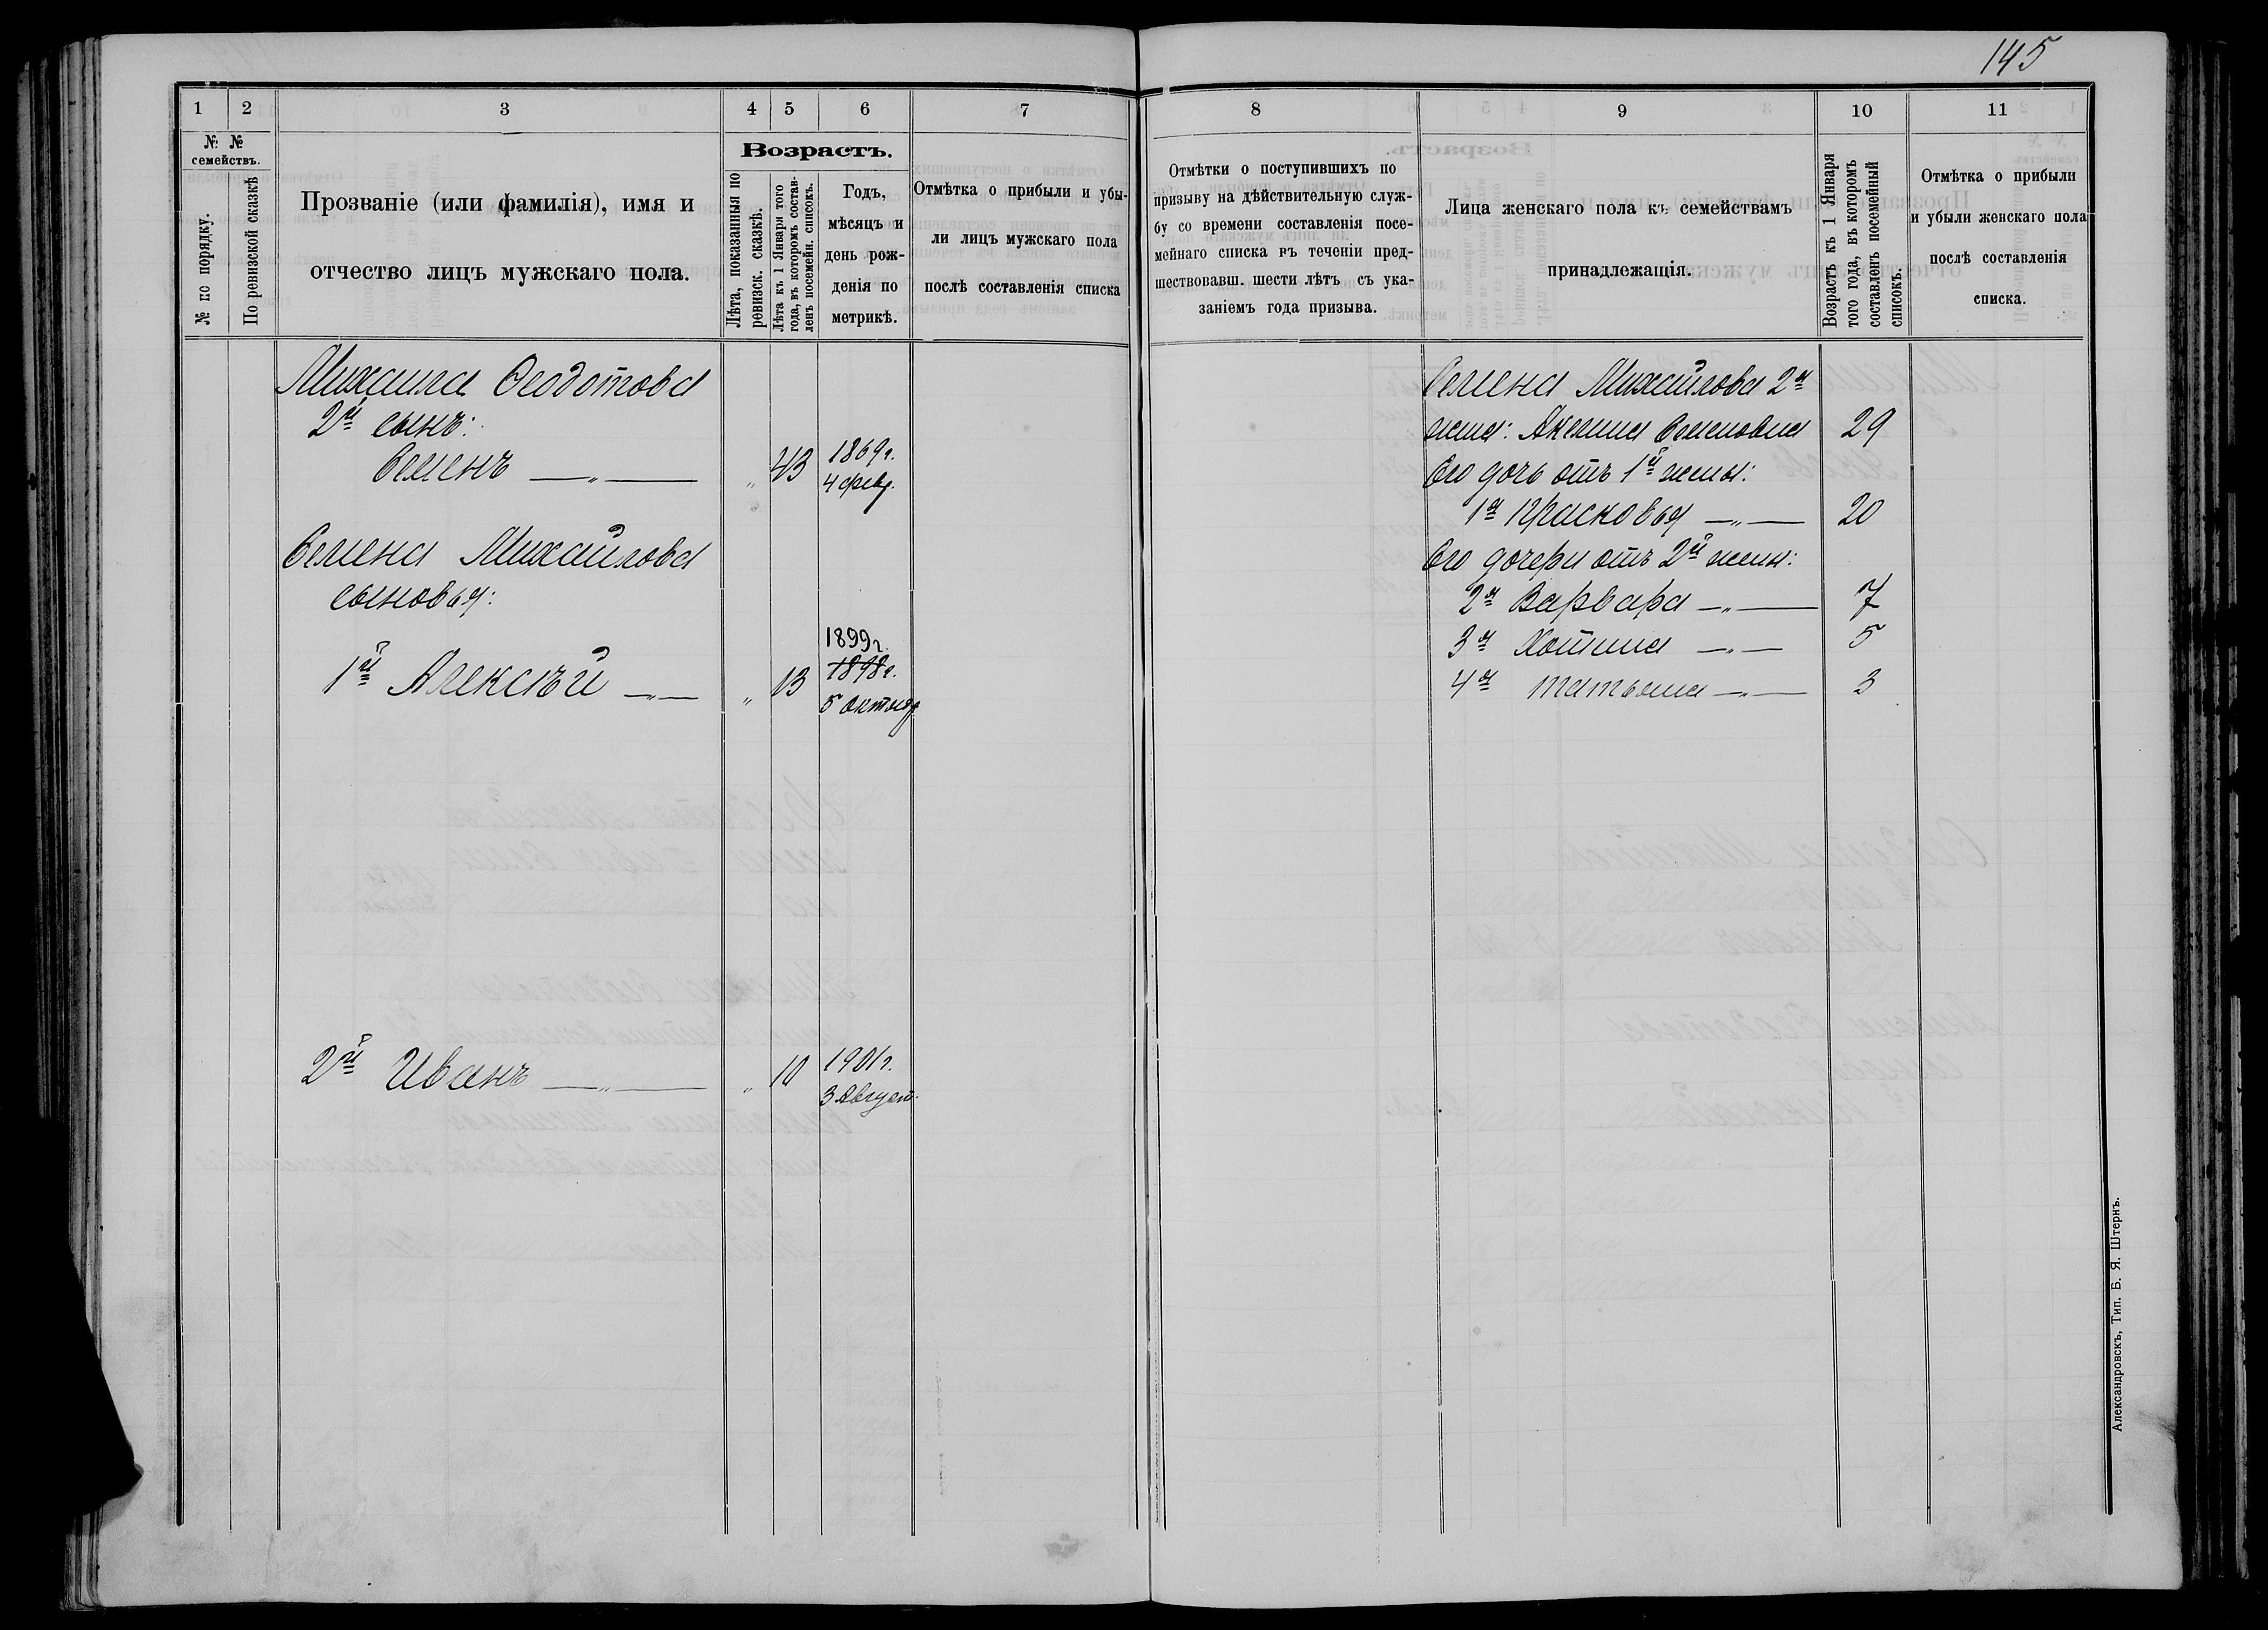 145
1
2
3
4
5
6
7
8
9
10
11
№ №
семействъ.
№ по порядку.
По ревизской сказкѣ
Прозваніе (или фамилія), имя и
отчество лицъ мужскаго пола.
Возрастъ.
Лѣта, показанныя по
ревизск. сказкѣ.
Лѣта къ 1 Января того
года, въ которомъ состав-
ленъ посемейн. списокъ.
Годъ,
мѣсяцъ и
день рож-
денія по
метрикѣ.
Отмѣтка о прибыли и убы-
ли лицъ мужскаго пола
послѣ составленія списка
Отмѣтки о поступившихъ по
призыву на дѣйствительную служ-
бу со времени составленія посе-
мейнаго списка въ теченіи пред-
шествовавш. шести лѣтъ съ ука-
заніемъ года призыва.
Лица женскаго пола къ семействамъ
принадлежащія.
Возрастъ къ 1 Января
того года, въ которомъ
составленъ посемейный
списокъ.
Отмѣтка о прибыли
и убыли женскаго пола
послѣ составленія
списка.
Михаила Ѳеодотова
2й сынъ:
Семенъ — „ — „ 43 1869г.
4 февр.
Семена Михайлова
сыновья:
1й Алексѣй — „ — „ 13 1899г.
1898г.
5 октяб.
2й Иванъ — „ — „ 10 1901г.
3 Август.
Семена Михайлова 2я
жена: Акелина Семеновна 29
Его дочь отъ 1й жены:
1я Прасковья — „ — 20
Его дочери отъ 2й жены:
2я Варвара — „ — 7
3я Хотина — „ — 5
4я Татьяна — „ — 3
Александровскъ, Тип. Б. Я. Штернъ.